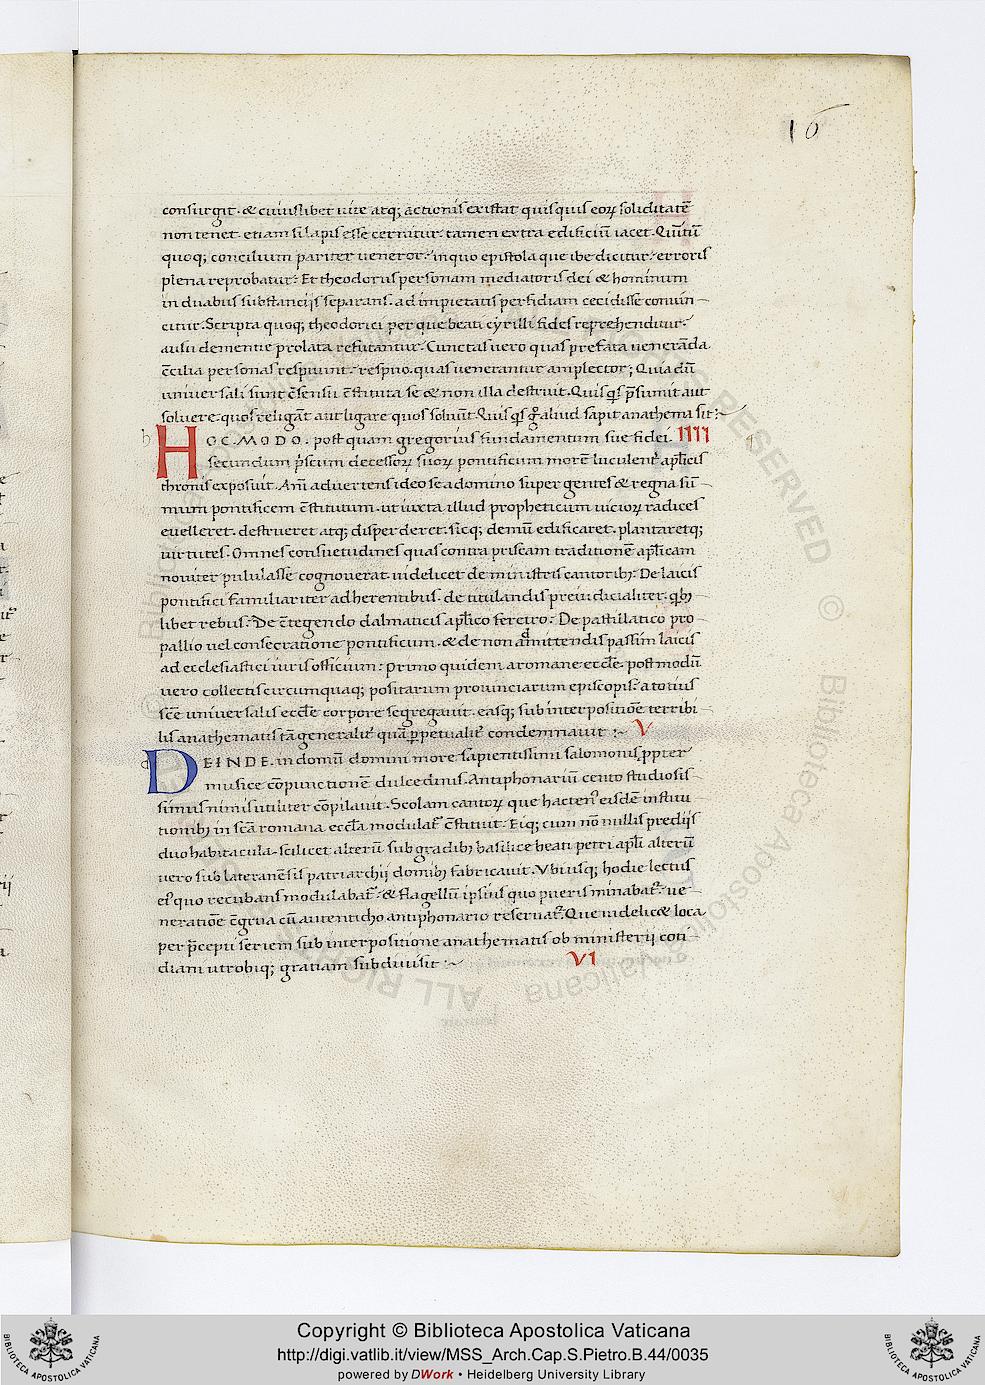 16
consurgit. & cuiuslibet uite atq; actionis existat quisquis eoꝝ soliditatē
non tenet. etiam si lapis esse cernitur. tamen extra edificiū iacet. Quintū
quoq; concilium pariter ueneror. in quo epistola que ibe dicitur. erroris
plena reprobatur. Et theodorus personam mediatoris dei & hominum
in duabus substancijs separans. ad impietatis perfidiam cecidisse conuin-
citur. Scripta quoq; theodorici per que beati cyrilli fides reprehenditur.
ausu dementie prolata refutantur. Cunctas uero quas prefata ueneranda
cc̄ilia personas respuunt. respuo. quas uenerantur amplector; Quia dū
uniuersali sunt c̄sensu c̄stituta se & non illa destruit. Quisqs p̄sumit aut
soluere. quos religāt aut ligare quos soluūt. Quisqs g̊ aliud sapit anathema sit:~
h HOC. MODO. postquam gregorius fundamentum sue fidei. IIII
secundum p̄scum decessoꝝ suoꝝ pontificum morē luculent̄ apl̄icis
thronis exposuit. Aīaduertens ideo se a domino super gentes & regna sū-
mum pontificem c̄stitutum. ut iuxta illud propheticum uicioꝝ radices
euelleret. destrueret atq; disperderet. sicq; demū edificaret. plantaretq;
uirtutes. Omnes consuetudines quas contra priscam traditionē apl̄icam
nouiter pululasse cognouerat. uidelicet de ministris cantorib;. De laicis
pontifici familiariter adherentibus. de titulandis preiudicialiter. qb;
libet rebus. De c̄tegendo dalmaticis apl̄ico feretro. De pastillatico pro
pallio uel consecratione pontificum. & de non admittendis passim laicis
ad ecclesiastici iuris officium. primo quidem a romane eccl̄e. postmodū
uero collectis circumquaq; positarum prouinciarum episcopis. a totius
sc̄e uniuersalis eccl̄e corpore segregauit. easq; sub interpositiōe terribi-
lis anathematis tā generalit̄ quā ꝑpetualit̄ condemnauit:~ V
d DEINDE. in domū domini more sapientissimi salomonis. ꝓpter
musice cōpunctionē dulcedinis. Antiphonariū cento studiosis-
simus nimis utiliter cōpilauit. Scolam cantoꝝ que hacten᷒ eisdē institu
tionib; in sc̄a romana eccl̄a modulat̄ c̄stituit. Eiq; cum nōnullis predijs
duo habitacula. scilicet alterū sub gradib; basilice beati petri apl̄i alterū
uero sub lateranēsis patriarchij domib; fabricauit. Vbi usq; hodie lectus
ei᷒ quo recubans modulabat̄. & flagellū ipsius quo pueris minabat̄. ue-
neratiōe c̄grua cū autenticho antiphonario reseruat̄. Que uidelic& loca
per p̄cepti seriem sub interpositione anathematis ob ministerij coti-
diani utrobiq; gratiam subdiuisit:~ VI
ALL RIGHTS RESERVED © Biblioteca Apostolica Vaticana
Copyright © Biblioteca Apostolica Vaticana
http://digi.vatlib.it/view/MSS_Arch.Cap.S.Pietro.B.44/0035
powered by DWork • Heidelberg University Library
BIBLIOTECA APOSTOLICA VATICANA
BIBLIOTECA APOSTOLICA VATICANA